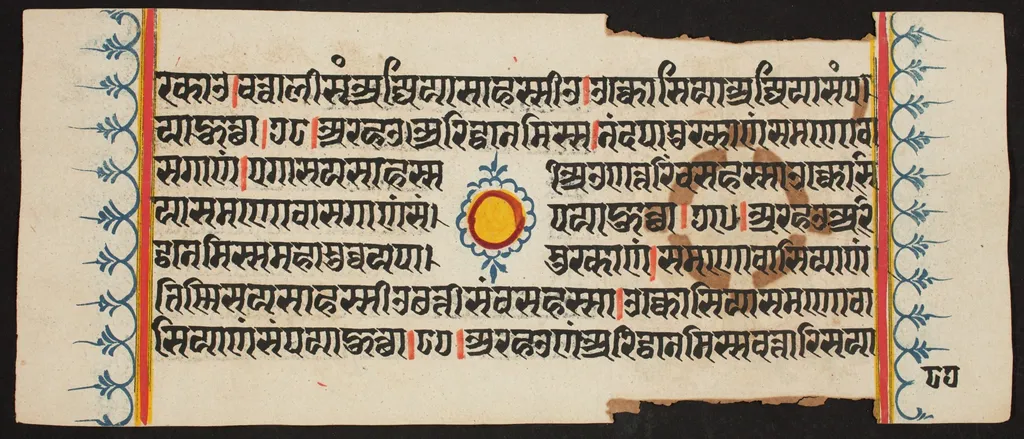 रकाउ।चत्तालीसंअज्जियासाहस्सीउ।उक्कोसियाअज्जियासंप।
याहुत्था।अरहउ।अरिट्ठनेमिस्स।नंदपामुरकाणंसमणोवा
सगाणं।एगासयसाहस्स ।अउणत्तरिंचसहस्साउक्कोसि
यासमणोवासगाणंसं। पयाहुत्था।अरहउअरि
ट्ठनेमिस्समहासुव्वयापा। मुरकाणं।समणोवासियाणं
तिन्निसयसाहस्सीउछत्तीसंचसहस्सा।उक्कोसियासमणोवा
सियाणंसंपयाहुत्था।अरहउणंअरिट्ठनेमिस्सचत्तारिसया